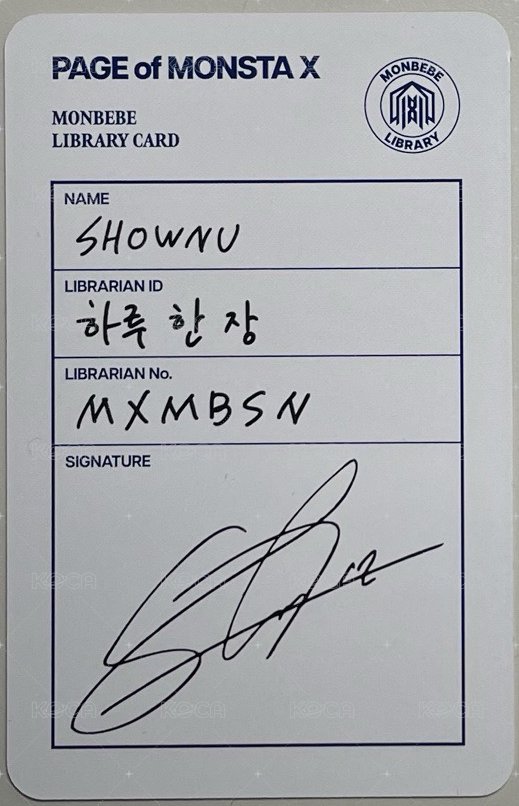 PAGE of MONSTA X
MONBEBE
LIBRARY CARD
MONBEBE
LIBRARY
NAME
SHOWNU
LIBRARIAN ID
하루 한 장
LIBRARIAN No.
MXMBSN
SIGNATURE
KOCA KOCA KOCA KOCA